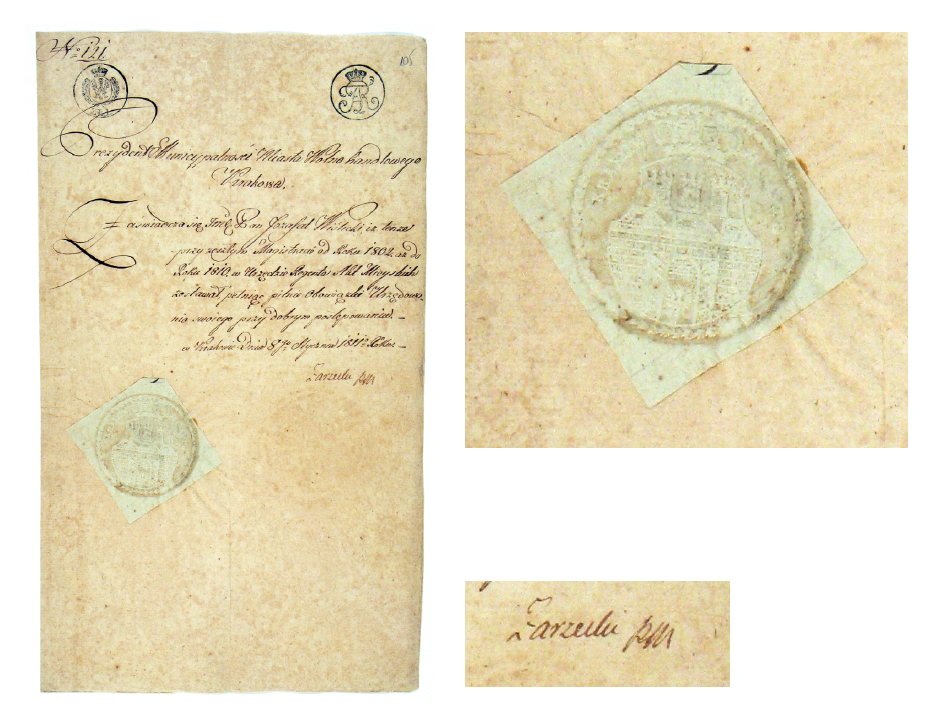 No 121.
105
Prezydent Municypalności Miasta Wolno handlowego
Krakowa.
Zaświadcza się Pan Józafat Wislicki, iż tenże
przy Magistracie od Roku 1802 aż do
Roku 1810 w Urzędzie Regenta Akt Mieyskich
zostawał, pełniąc pilnie Obowiązki Urzędowa-
nia swoiego przy dobrym postępowaniu. –
w Krakowie Dnia 8go Stycznia 1811o Roku –
Zarzecki
Zarzecki